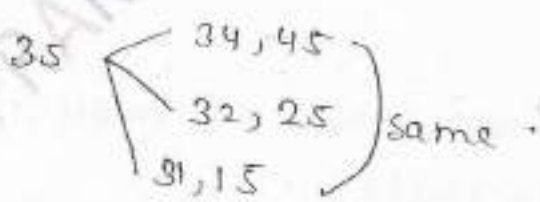 35
34, 45
32, 25
31, 15
same.